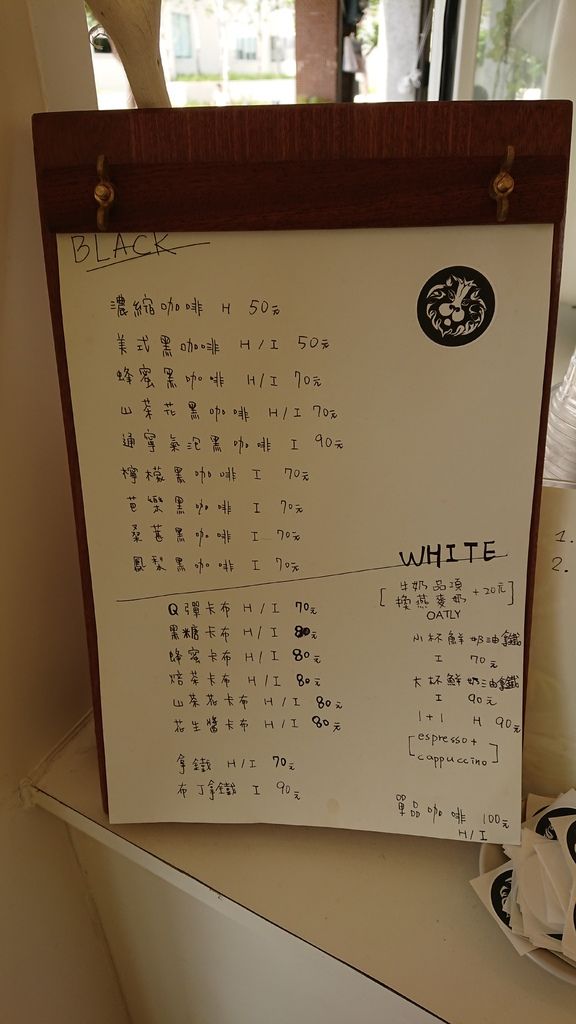 BLACK
濃縮咖啡 H 50元
美式黑咖啡 H/I 50元
蜂蜜黑咖啡 H/I 70元
山茶花黑咖啡 H/I 70元
通寧氣泡黑咖啡 I 90元
檸檬黑咖啡 I 70元
芭樂黑咖啡 I 70元
桑葚黑咖啡 I 70元
鳳梨黑咖啡 I 70元
WHITE
[牛奶品項 換燕麥奶 +20元]
OATLY
Q彈卡布 H/I 70元
黑糖卡布 H/I 80元
蜂蜜卡布 H/I 80元
焙茶卡布 H/I 80元
山茶花卡布 H/I 80元
花生醬卡布 H/I 80元
拿鐵 H/I 70元
布丁拿鐵 I 90元
小杯鮮奶油拿鐵
I 70元
大杯鮮奶油拿鐵
I 90元
1+1 H 90元
[espresso+
cappuccino]
單品咖啡 100元
H/I
1.
2.